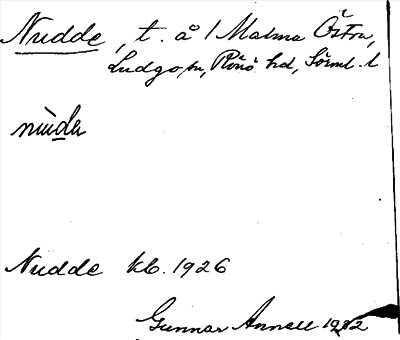 Nudde, t. å 1 Malma Östra,
Ludgo sn, Rönö hd, Sörml. l
nùda
Nudde kb. 1926
Gunnar Annell 1932